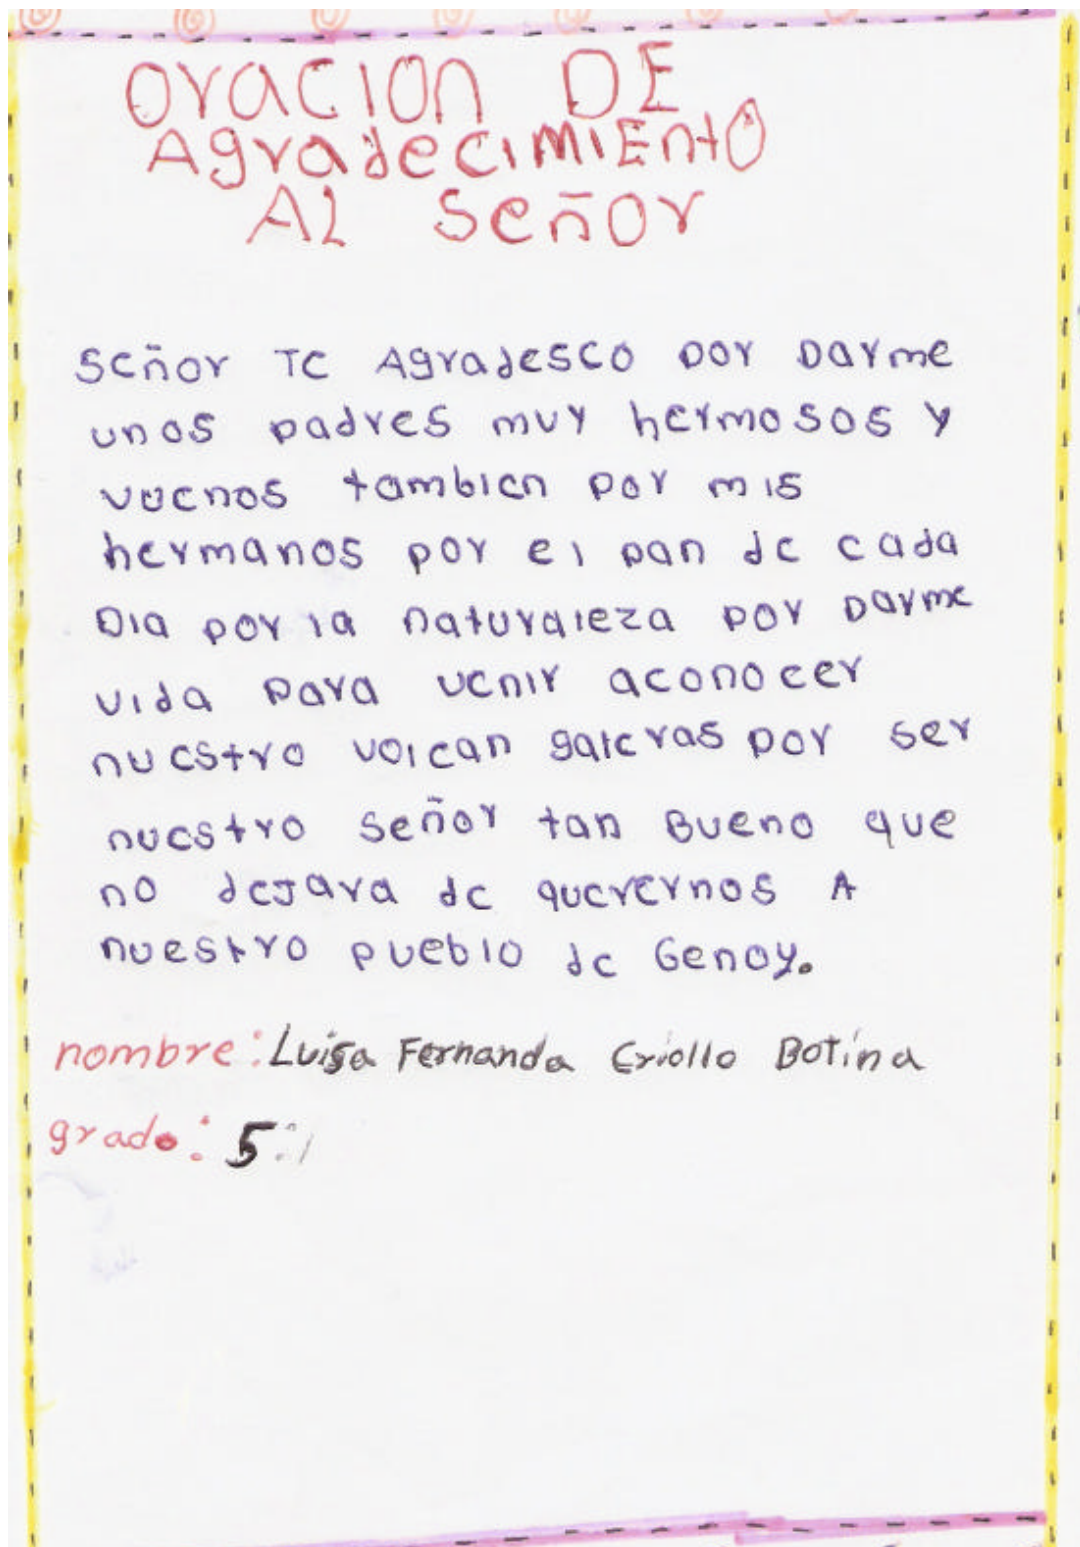 Oracion DE
AgradecimiEntO
Al Señor
Señor Te Agradesco por Darme
unos padres muy hermosos y
vuenos tambien por mis
hermanos por el pan de cada
Dia por la naturaleza por Darme
vida para venir aconocer
nuestro volcan galeras por ser
nuestro Señor tan Bueno que
no dejara de querernos A
nuestro pueblo de Genoy.
nombre: Luisa Fernanda Criollo Botina
grado: 5:1